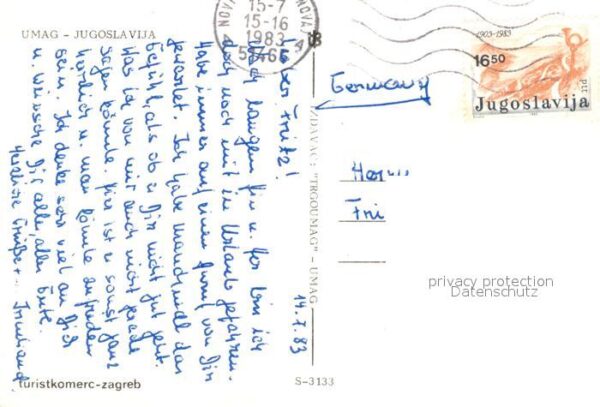 UMAG - JUGOSLAVIJA
15-7
15-16
1983
4
1903-1983
16,50
PTT
Jugoslavija
Germany
Herrn
Fri
privacy protection
Datenschutz
14.7.83
Lieber Fritz!
Nach langem hin u. her bin ich
doch noch mit in Urlaub gefahren.
Habe immer auf einen Anruf von Dir
gewartet. Ich habe manchmal das
Gefühl, als ob es Dir nicht gut geht.
Was ich von mir auch nicht gerade
sagen könnte. Hier ist es sonst ganz
herrlich u. man könnte zufrieden
sein. Ich denke sehr viel an Dich
u. wünsche Dir alles, alles Gute.
Herzliche Grüße
IZDAVAČ: "TRGOUMAG" - UMAG
turistkomerc-zagreb
S-3133